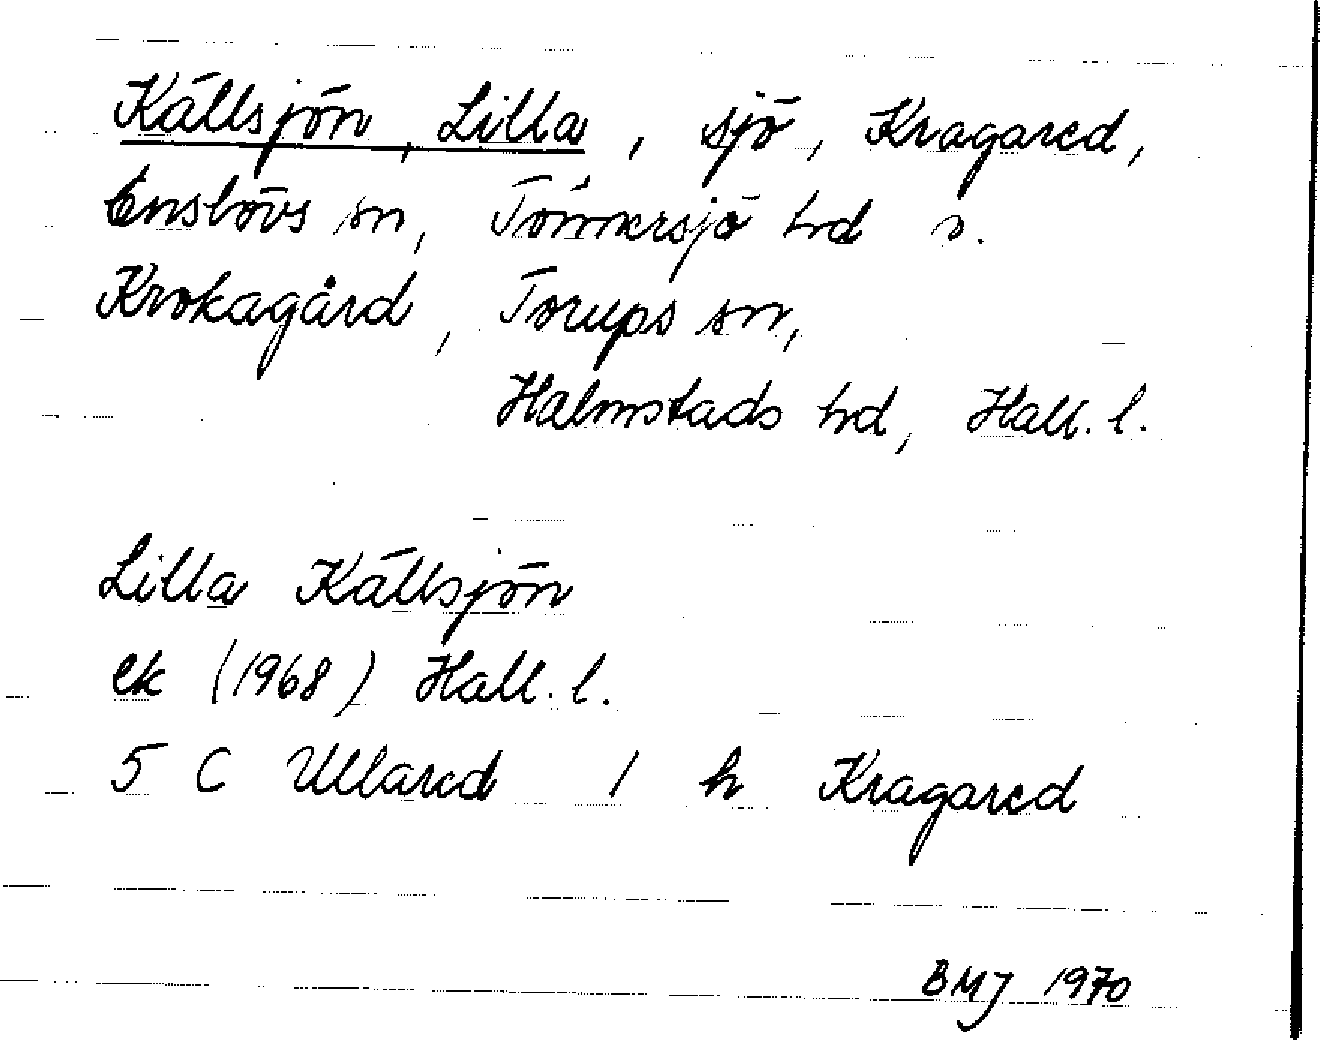 Källsjön, Lilla, sjö, Kragared,
Enslövs sn, Tönnersjö hd o.
Krokagård, Torups sn,
Halmstads hd, Hall. l.
Lilla Källsjön
ek (1968) Hall. l.
5 C Ullared 1 h Kragared
BMJ 1970